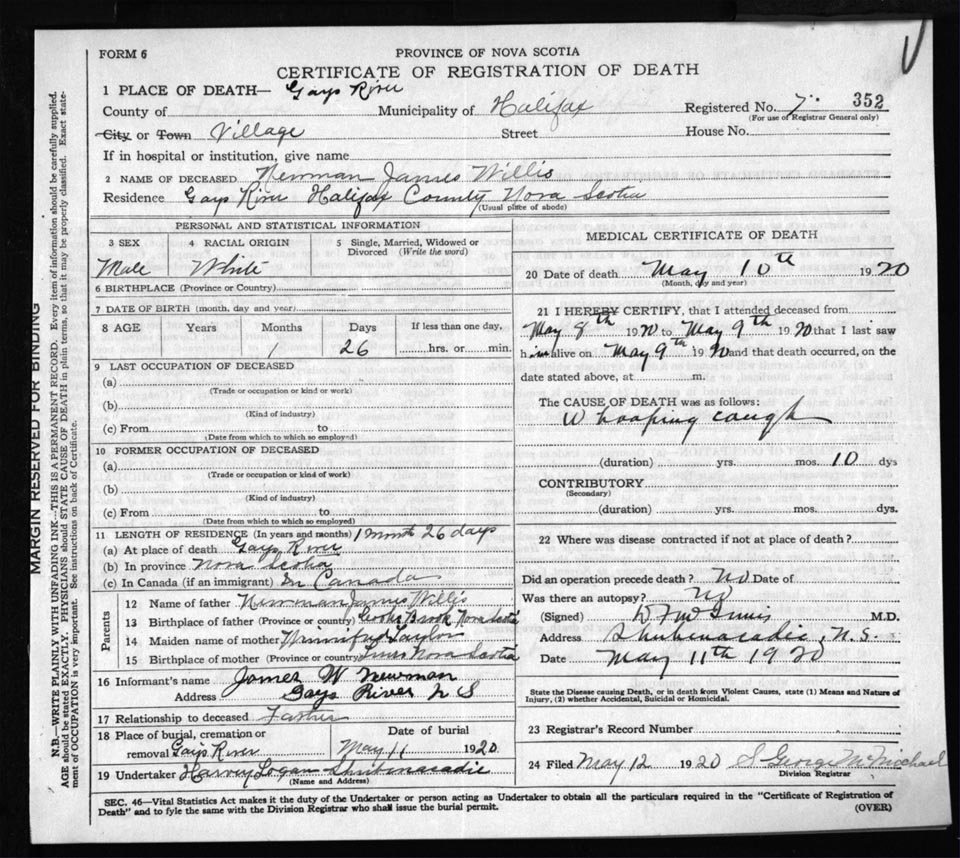 FORM 6
PROVINCE OF NOVA SCOTIA
CERTIFICATE OF REGISTRATION OF DEATH
1 PLACE OF DEATH— Gays River
County of Municipality of Halifax Registered No. 7. 352
(For use of Registrar General only)
City or Town Village Street House No.
If in hospital or institution, give name
2 NAME OF DECEASED Newman James Willis
Residence Gays River Halifax County Nova Scotia
(Usual place of abode)
PERSONAL AND STATISTICAL INFORMATION
3 SEX 4 RACIAL ORIGIN 5 Single, Married, Widowed or Divorced (Write the word)
Male White
6 BIRTHPLACE (Province or Country)
7 DATE OF BIRTH (month, day and year)
8 AGE Years Months Days If less than one day,
1 26 hrs. or min.
9 LAST OCCUPATION OF DECEASED
(a)
(Trade or occupation or kind or work)
(b)
(Kind of industry)
(c) From to
(Date from which to which so employed)
10 FORMER OCCUPATION OF DECEASED
(a)
(Trade or occupation or kind of work)
(b)
(Kind of industry)
(c) From to
(Date from which to which so employed)
11 LENGTH OF RESIDENCE (In years and months) 1 month 26 days
(a) At place of death Gays River
(b) In province Nova Scotia
(c) In Canada (if an immigrant) In Canada
Parents
12 Name of father Newman James Willis
13 Birthplace of father (Province or country) Brook Nova Scotia
14 Maiden name of mother Winnifred Taylor
15 Birthplace of mother (Province or country) Nova Scotia
16 Informant's name James W Newman
Address Gays River N S
17 Relationship to deceased Father
18 Place of burial, cremation or Date of burial
removal Gays River May 11 1920
19 Undertaker Harvey Logan Shubenacadie
(Name and Address)
MEDICAL CERTIFICATE OF DEATH
20 Date of death May 10th 1920
(Month, day and year)
21 I HEREBY CERTIFY, that I attended deceased from
May 8th 1920 to May 9th 1920 that I last saw
him alive on May 9th 1920 and that death occurred, on the
date stated above, at m.
The CAUSE OF DEATH was as follows:
Whooping cough
(duration) yrs. mos. 10 dys
CONTRIBUTORY
(Secondary)
(duration) yrs. mos. dys.
22 Where was disease contracted if not at place of death?
Did an operation precede death? No Date of
Was there an autopsy? No
(Signed) M.D.
Address Shubenacadie, N.S.
Date May 11th 1920
State the Disease causing Death, or in death from Violent Causes, state (1) Means and Nature of
Injury, (2) whether Accidental, Suicidal or Homicidal.
23 Registrar's Record Number
24 Filed May 12 1920 S George McMichael
Division Registrar
SEC. 46—Vital Statistics Act makes it the duty of the Undertaker or person acting as Undertaker to obtain all the particulars required in the "Certificate of Registration of
Death" and to fyle the same with the Division Registrar who shall issue the burial permit. (OVER)
MARGIN RESERVED FOR BINDING
N.B.—WRITE PLAINLY WITH UNFADING INK—THIS IS A PERMANENT RECORD. Every item of information should be carefully supplied.
AGE should be stated EXACTLY. PHYSICIANS should STATE CAUSE OF DEATH in plain terms, so that it may be properly classified. Exact statement
of OCCUPATION is very important. See instructions on back of Certificate.